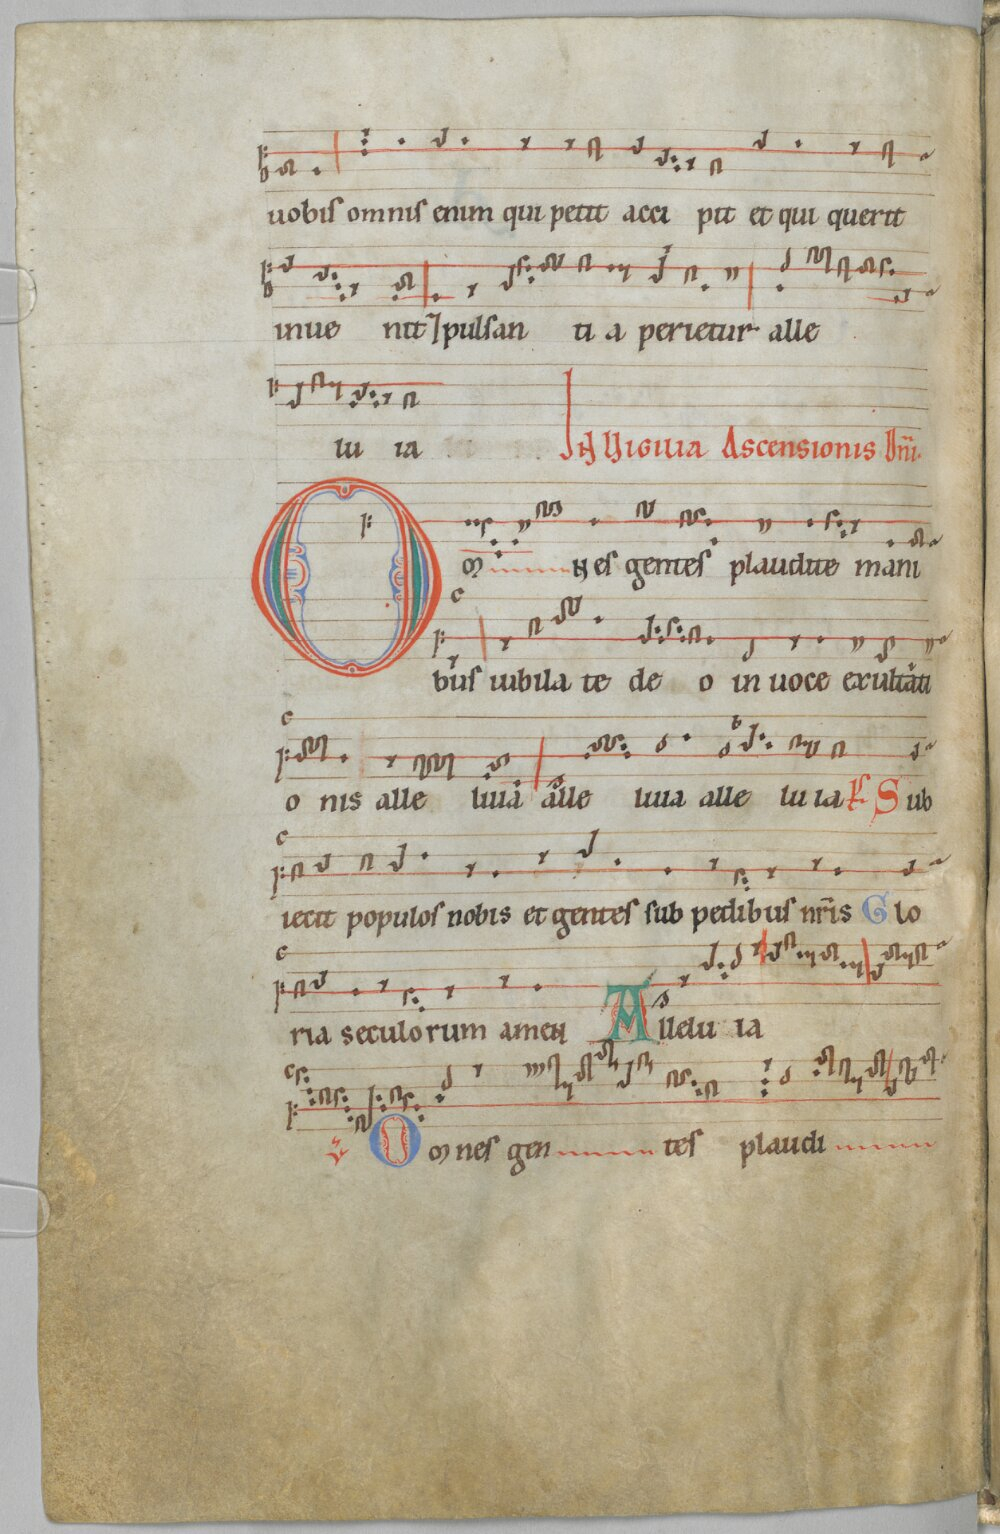 uobis omnis enim qui petit acci pit et qui querit
inue nit ⁊pulsan ti a perietur alle
lu ia In Uigilia Ascensionis Dñi.
Om nes gentes plaudite mani
bus iubila te de o in uoce exultati
o nis alle luia alle luia alle lu ia Sub
iecit populos nobis et gentes sub pedibus nr̃is Glo
ria seculorum amen Allelu ia
Omnes gen tes plaudi